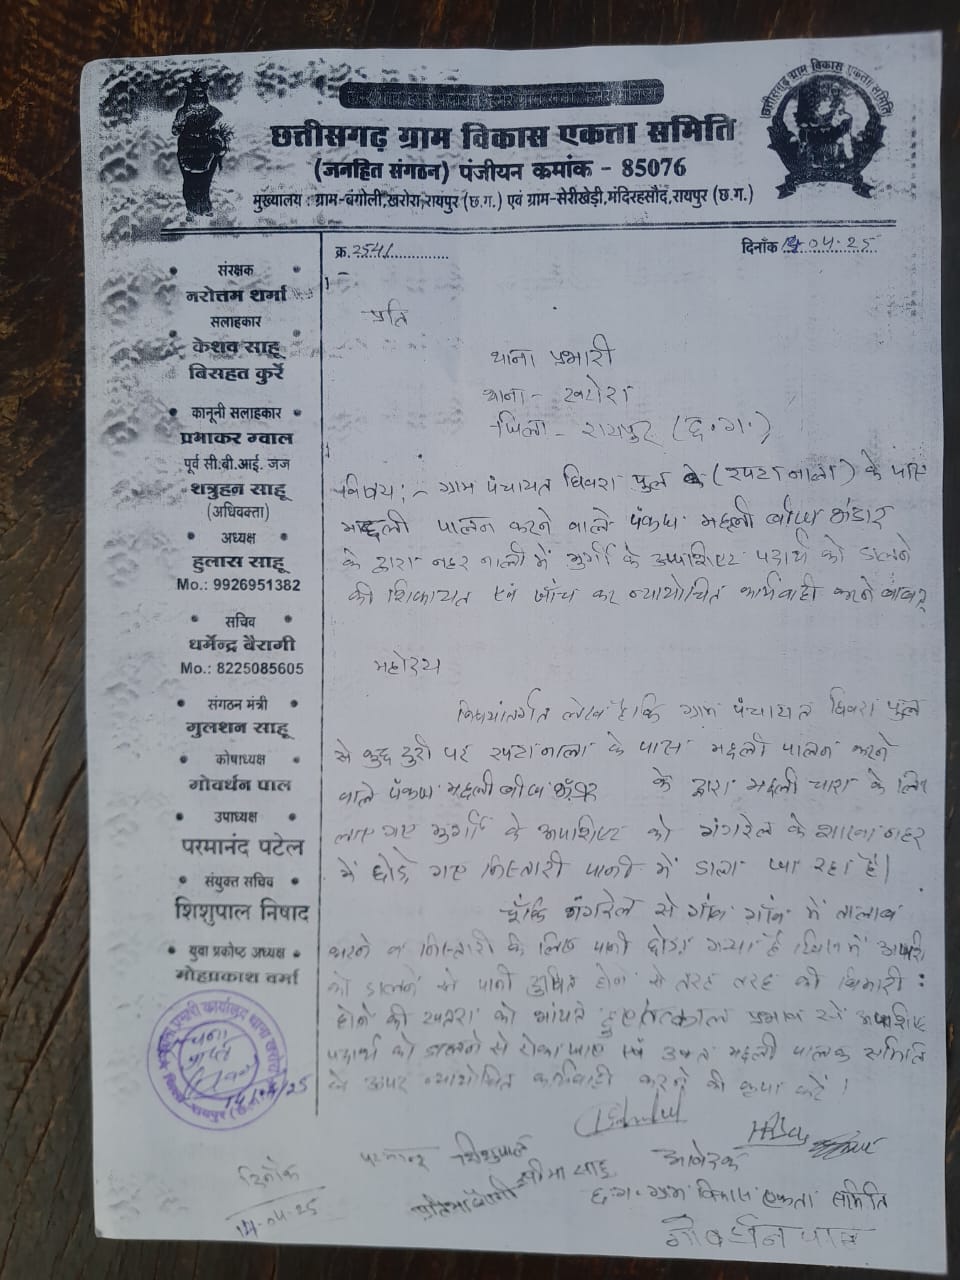 छत्तीसगढ़ ग्राम विकास एकता समिति
छत्तीसगढ़ ग्राम विकास एकता समिति
(जनहित संगठन) पंजीयन कमांक - 85076
मुख्यालय : ग्राम-बंगोली,खरोरा,रायपुर (छ.ग.) एवं ग्राम-सेरीखेड़ी,मंदिरहसौद,रायपुर (छ.ग.)
क्र. 254/
दिनाँक 14.04.25
संरक्षक
नरोत्तम शर्मा
सलाहकार
केशव साहू
बिसहत कुर्रे
कानूनी सलाहकार
प्रभाकर ग्वाल
पूर्व सी.बी.आई. जज
शत्रुहन साहू
(अधिवक्ता)
अध्यक्ष
हुलास साहू
Mo.: 9926951382
सचिव
धर्मेन्द्र बैरागी
Mo.: 8225085605
संगठन मंत्री
गुलशन साहू
कोषाध्यक्ष
गोवर्धन पाल
उपाध्यक्ष
परमानंद पटेल
संयुक्त सचिव
शिशुपाल निषाद
युवा प्रकोष्ट अध्यक्ष
मोहप्रकाश वर्मा
प्रति
थाना प्रभारी
थाना - खरोरा
जिला - रायपुर (छ.ग.)
विषय :- ग्राम पंचायत घिवरा पुल के (रपटा नाला) के पास
मछली पालन करने वाले पंकज मछली बीज भंडार
के द्वारा नहर नाली में मुर्गी के अपशिष्ट पदार्थ को डालने
की शिकायत एवं जाँच कर न्यायोचित कार्यवाही करने बाबत्
महोदय
विषयांतर्गत लेख है कि ग्राम पंचायत घिवरा पुल
से कुछ दुरी पर रपटा नाला के पास मछली पालन करने
वाले पंकज मछली बीज भंडार के द्वारा मछली चारा के लिए
लाए गए मुर्गी के अपशिष्ट को गंगरेल के शाखा नहर
में छोड़े गए निस्तारी पानी में डाला जा रहा है।
चूँकि गंगरेल से गांव गाँव में तालाब
भरने व निस्तारी के लिए पानी छोड़ा गया है जिसमें
को डालने से पानी दुषित होने से तरह तरह की बिमारी
होने की खतरा को भांपते हुए तत्काल प्रभाव से अपशिष्ट
पदार्थ को डालने से रोका जाए एवं उक्त मछली पालक समिति
के ऊपर न्यायोचित कार्यवाही करने की कृपा करें।
सूचना
प्राप्त
14/04/25
दिनांक
14-04-25
परमानन्द शिशुपाल
सीमा साहू
आवेदक
छ.ग. ग्राम विकास एकता समिति
गोवर्धन पाल